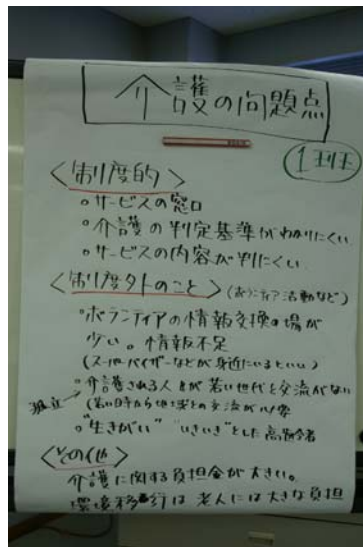 介護の問題点
1班
〈制度的〉
。サービスの窓口
。介護の判定基準がわかりにくい
。サービスの内容が判にくい
〈制度外のこと〉(ボランティア活動など)
。ボランティアの情報交換の場が
少い。情報不足
(スーパーバイザーなどが身近にいるといい)
。介護される人が若い世代と交流がない
孤立→
(若い時から地域との交流が必要
。"生きがい" "いきいき"とした高齢者
〈その他〉
介護に関する負担金が大きい。
環境移行は老人には大きな負担